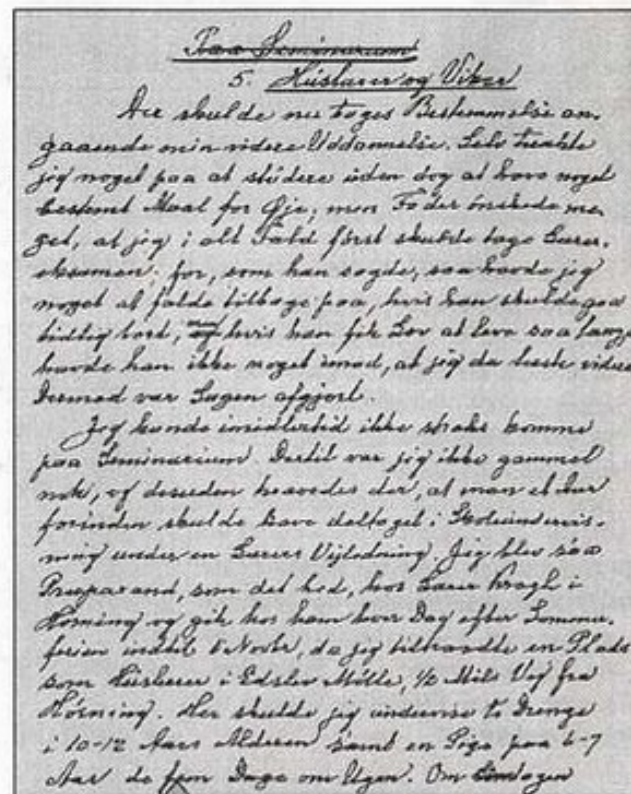 Paa Seminarium
5. Huslærer og Vikar
Der skulde nu tages Bestemmelse an-
gaaende min videre Uddannelse. Selv tænkte
jeg noget paa at studere uden dog at have noget
bestemt Maal for Øje; men Fader ønskede me-
get, at jeg i alt Fald først skulde tage Lærer-
eksamen; for, som han sagde, saa havde jeg
noget at falde tilbage paa, hvis han skulde gaa
tidlig bort, men hvis han fik Lov at leve saa længe
havde han ikke noget imod, at jeg da læste videre
Dermed var Sagen afgjort.
Jeg kunde imidlertid ikke straks komme
paa Seminarium. Dertil var jeg ikke gammel
nok, og desuden krævedes der, at man et Aar
forinden skulde have deltaget i Skoleundervis-
ning under en Lærers Vejledning. Jeg blev saa
Præparand, som det hed, hos Lærer Kragh i
Hørning og gik hos ham hver Dag efter Sommer-
ferien indtil Novbr, da jeg tiltraadte en Plads
som Huslærer i Edslev Mølle, 1/2 Mils Vej fra
Hørning. Her skulde jeg undervise to Drenge
i 10-12 Aars Alderen samt en Pige paa 6-7
Aar de fem Dage om Ugen. Om